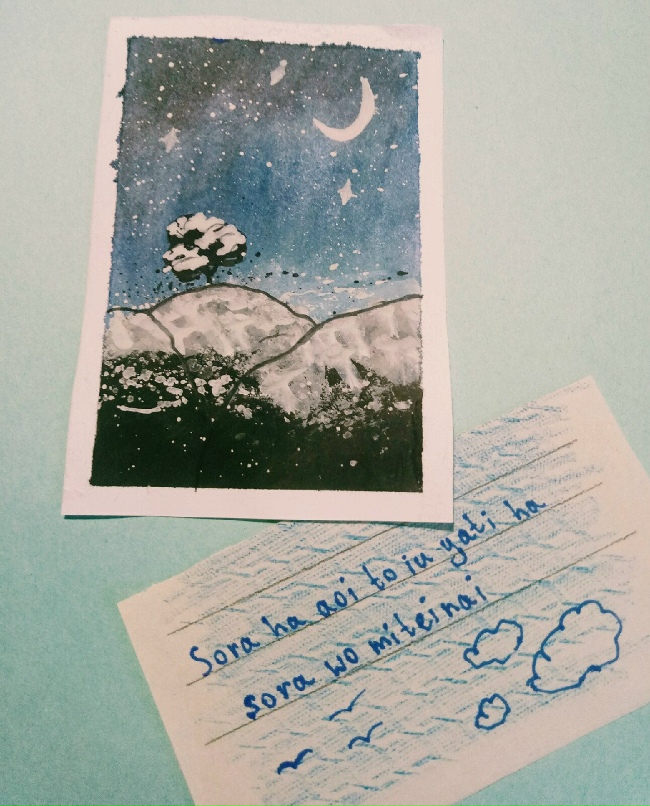 Sora ha aoi to iu yati ha
sora wo miteinai